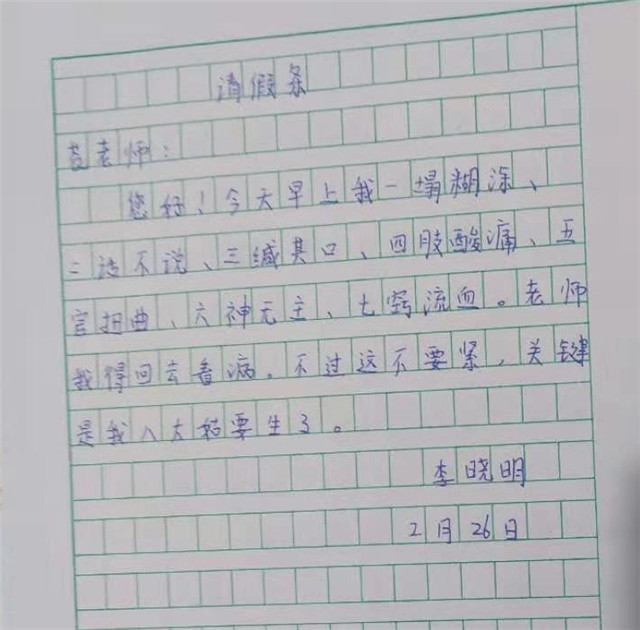 请假条
苍老师：
您好！今天早上我一塌糊涂、
二话不说、三缄其口、四肢酸痛、五
官扭曲、六神无主、七窍流血。老师
我得回去看病。不过这不要紧，关键
是我八大姑要生了。
李晓明
2月26日